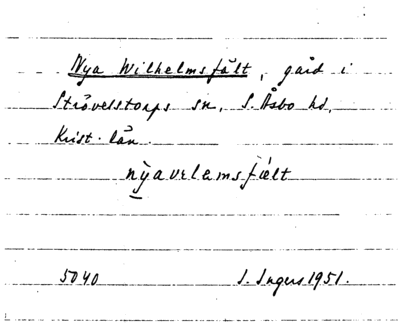 Nya Wilhelmsfält, gård i
Strövelstorps sn, S. Åsbo hd,
Krist. län.
nyavelemsfält
5040 I. Ingers 1951.